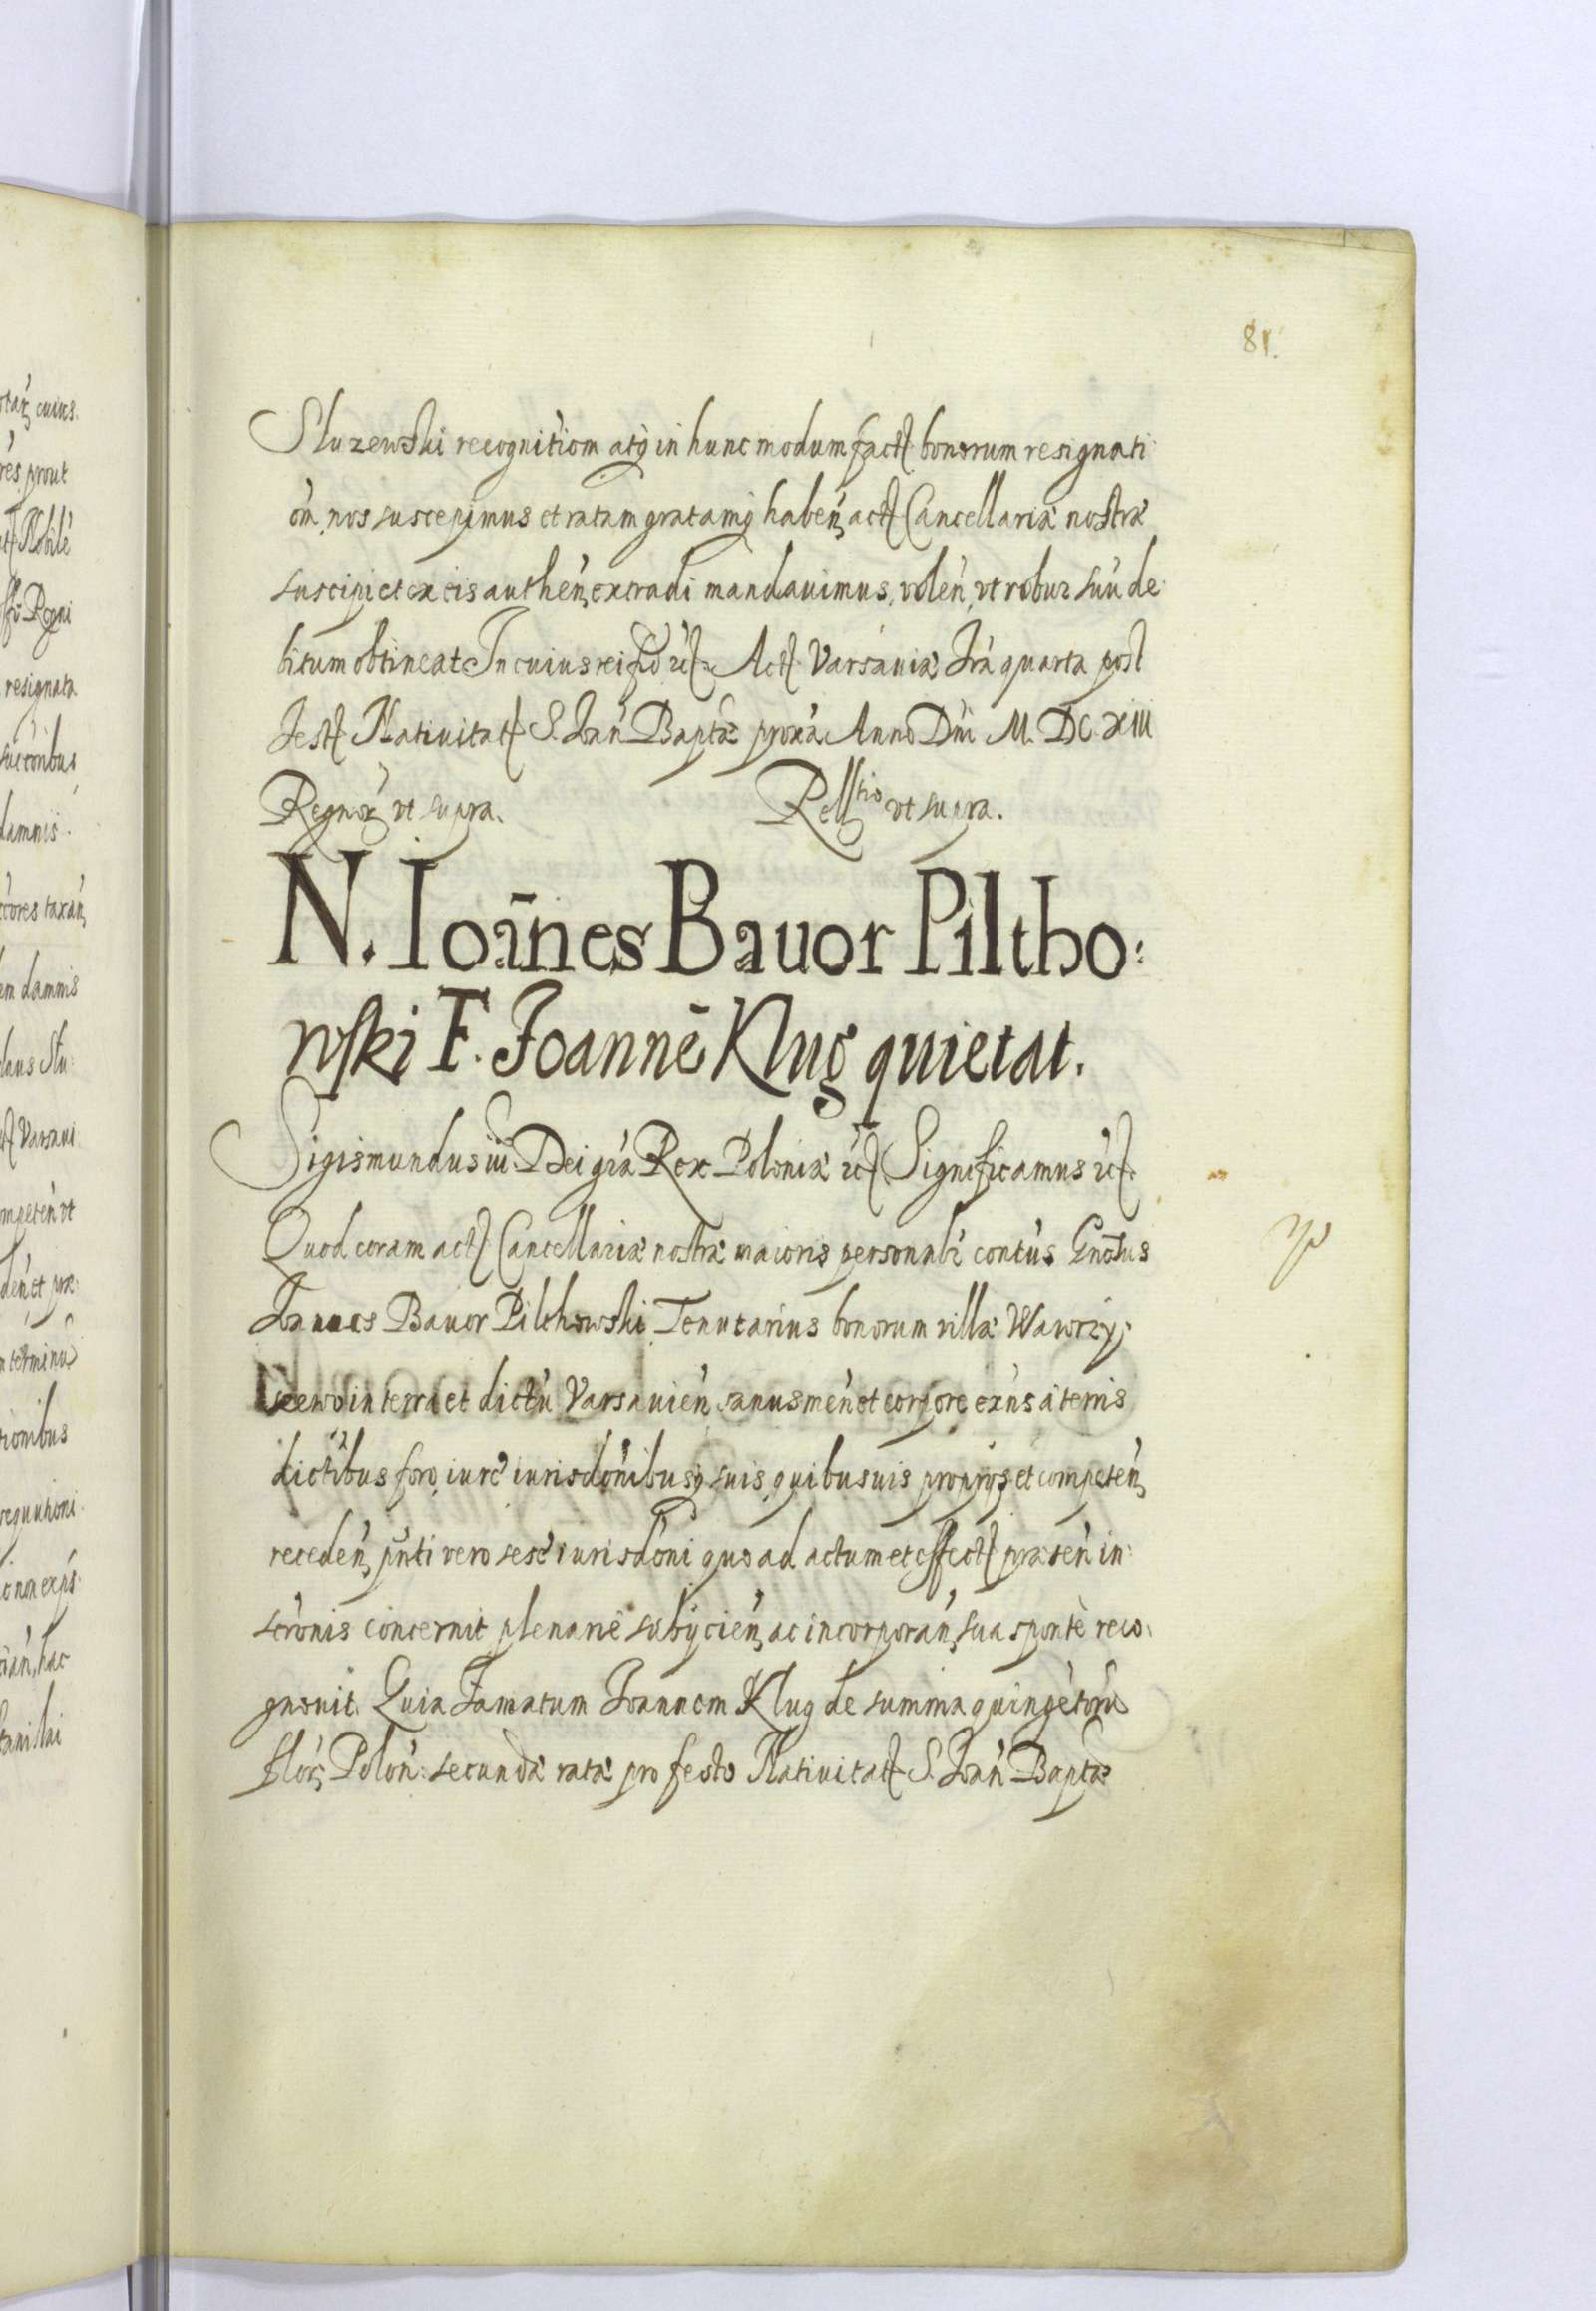 81.
Sluzewski recognitiom atq in hunc modum fact bonorum resignati
om, nos suscepimus et ratam gratamq haben, act Cancellariæ nostræ
suscipi et ex eis authen, extradi mandauimus, volen, vt robur suu de
bitum obtineat In cuius rei fid etc Act Varsauiæ fra quarta post
fest Natiuitat S. Ioan Baptæ proxa Anno Dni M. DC. XIII
Regnor vt supra. Relltio vt supra.
N. Ioānes Bauor Piltho:
wski F. Joannē Klug quietat.
Sigismundus iii Dei gra Rex Poloniæ etc Significamus etc
Quod coram act Cancellariæ nostræ maioris personalr contus Gnosus
Ioannes Bauor Pilchowski Tenutarius bonorum villæ Wawrzy:
szewo in terra et dictu Varsauien, sanus men et corpore exns à terris
dictibus foro, iure iurisdonibusq suis quibusuis proprijs et competen,
receden, pnti vero sese iurisdoni quo ad actum et effect præsen in:
scronis concernit plenariè subijcien, ac incorporan, sua sponte reco:
gnouit. Quia Famatum Ioannem Klug de summa quingētorū
flor, Polon: secundæ ratæ pro festo Natiuitat S. Ioan Baptæ
otar, cuius.
res prout
Nobile
Regni
resignata
damnis
ctores taxan,
em damnis
Varsaui
competen vt
den et præ:
terminū
tionibus
cian, hac